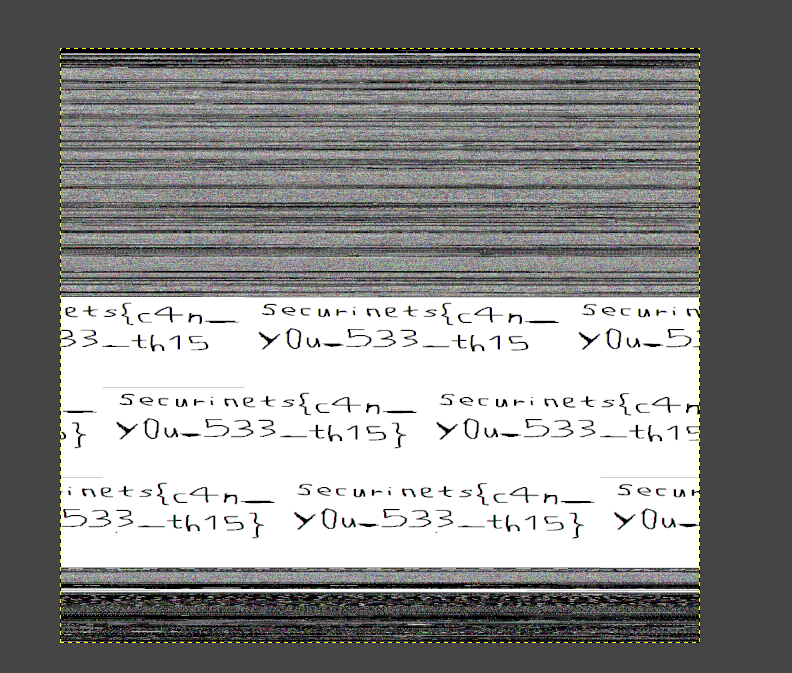 ets{c4n_ Securinets{c4n_ Securin
33_th15 y0u_533_th15 y0u_5
_ Securinets{c4n_ Securinets{c4n
} y0u_533_th15} y0u_533_th15
inets{c4n_ Securinets{c4n_ Secur
533_th15} y0u_533_th15} y0u_